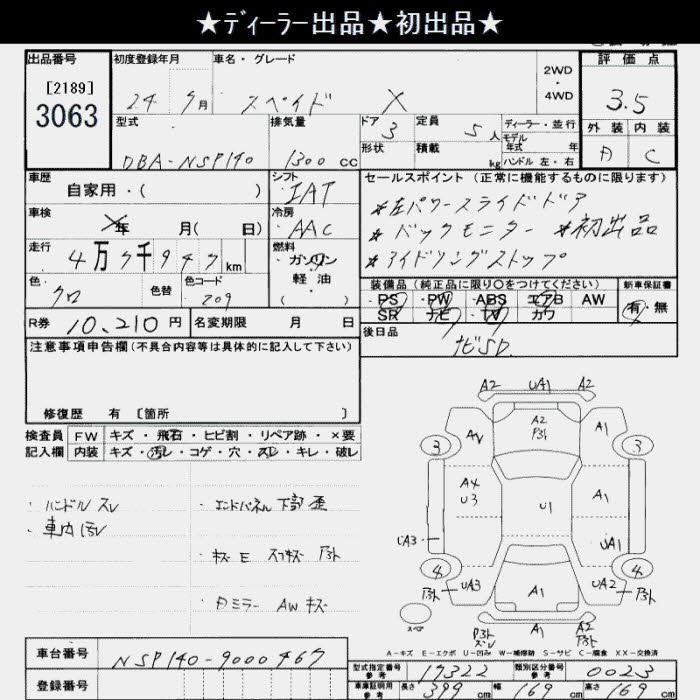 ★ディーラー出品★初出品★
出品番号
[2189]
3063
初度登録年月
24 7月
車名・グレード
スペイド X
2WD
・
4WD
評価点
3.5
外装 内装
A C
型式
DBA-NSP140
排気量
1300 CC
ドア 3
形状
定員 5人
積載 kg
ディーラー・並行
モデル
年式 年
ハンドル 左・右
車歴
自家用・( )
シフト
IAT
セールスポイント (正常に機能するものに限ります)
*左パワースライドドア
*バックモニター *初出品
*アイドリングストップ
車検
年 月( 日)
冷房
AAC
走行
4万7千947km
燃料
ガソリン
軽油
( )
色
クロ
色替
色コード
209
装備品 (純正品に限り○をつけてください)
PS・PW・ABS・エアB AW
SR ナビ TV カワ
新車保証書
有・無
R券 10,210円
名変期限 月 日
後日品
ナビSD
注意事項申告欄(不具合内容等は具体的に記入して下さい)
修復歴 有 [箇所 ]
検査員
記入欄
FW キズ・飛石・ヒビ割・リペア跡・×要
内装 キズ・汚レ・コゲ・穴・スレ・キレ・破レ
・ハンドル スレ
・車内 汚レ
・エンドパネル 下部 歪
・キズ E スリキズ
・ミラー AW キズ
A2 UA1 A2
A2
3 A1 3
A4
U3 U1 A1
UA3 UA1
4 UA3 A1 UA2 4
スペア
A1 A2
A-キズ E-エクボ U-凹み W-補修跡 S-サビ C-腐食 XX-交換済
車台番号
NSP140-9000467
登録番号
型式指定番号
参考
17322
類別区分番号
参考
0023
車庫証明用
参考
長さ 399cm 幅 169cm 高さ 169cm